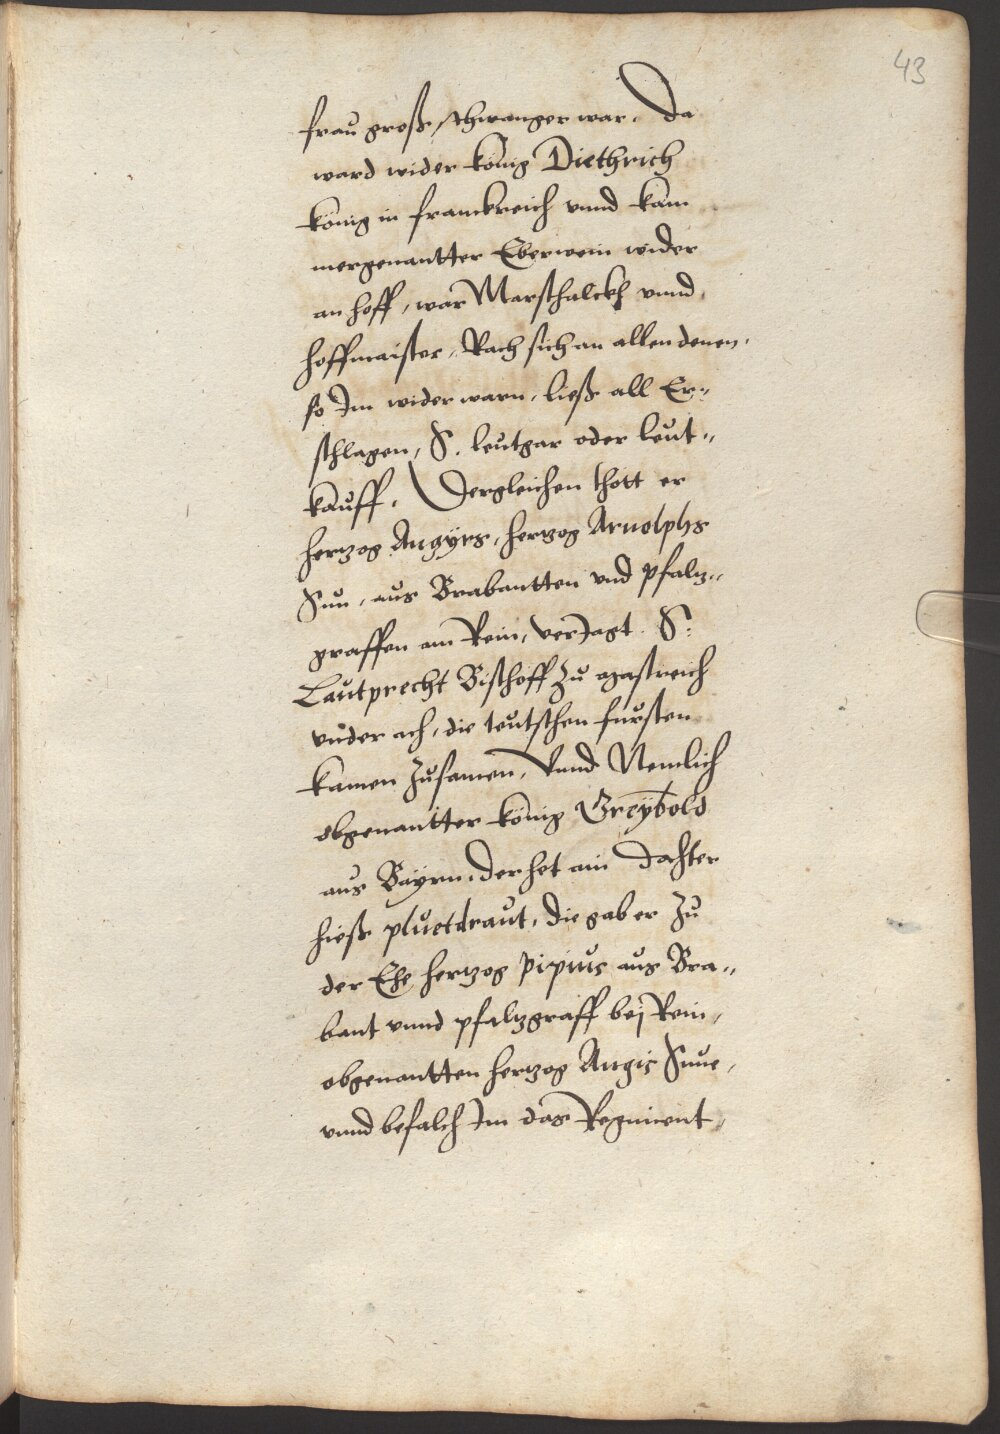 43
frau groß schwanger war. Da
ward wider könig Diethrich
könig in franckreich vnnd kam
mergenantter Eberwein wider
an hoff, war Marschalckh vnnd
hoffmaister, Rach sich an allen denen,
so Im wider warn, ließ all Er„
schlagen, S. leutgar oder leut„
kauff. Dergleichen thott er
hertzog Angyrs, hertzog Arnolphs
Sun, aus Brabantten vnd pfaltz„
graffen am Rein, verJagt. S.
Lautprecht Bischoff zu agastreich
vnder ach, die teutschen fursten
kamen zusamen, Vnnd Nemlich
obgenantter könig Greybold
aus Bayrn, der het ain dochter
hieß pluetdraut, die gab er zu
der Ehe hertzog pipinus aus Bra„
bant vnnd pfaltzgraff bej Rein,
obgenantten hertzog Angis Sune,
vnnd befalch Im das Regiment,